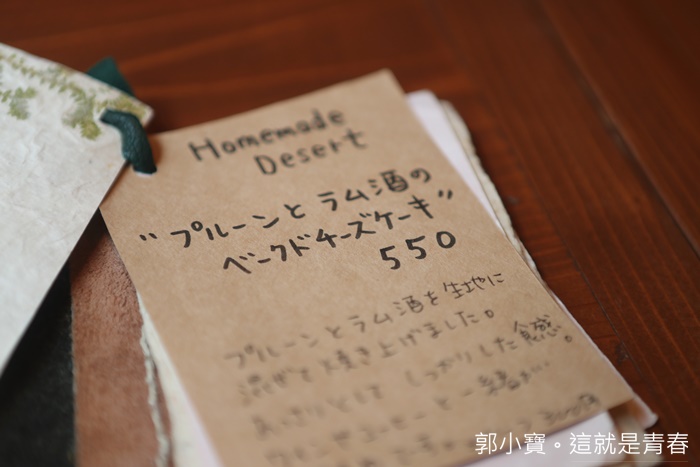 Homemade
Desert
"プルーンとラム酒の
ベークドチーズケーキ"
550
プルーンとラム酒を生地に
混ぜて焼き上げました。
しっかりした食感。
コーヒーと一緒に
郭小寶。這就是青春